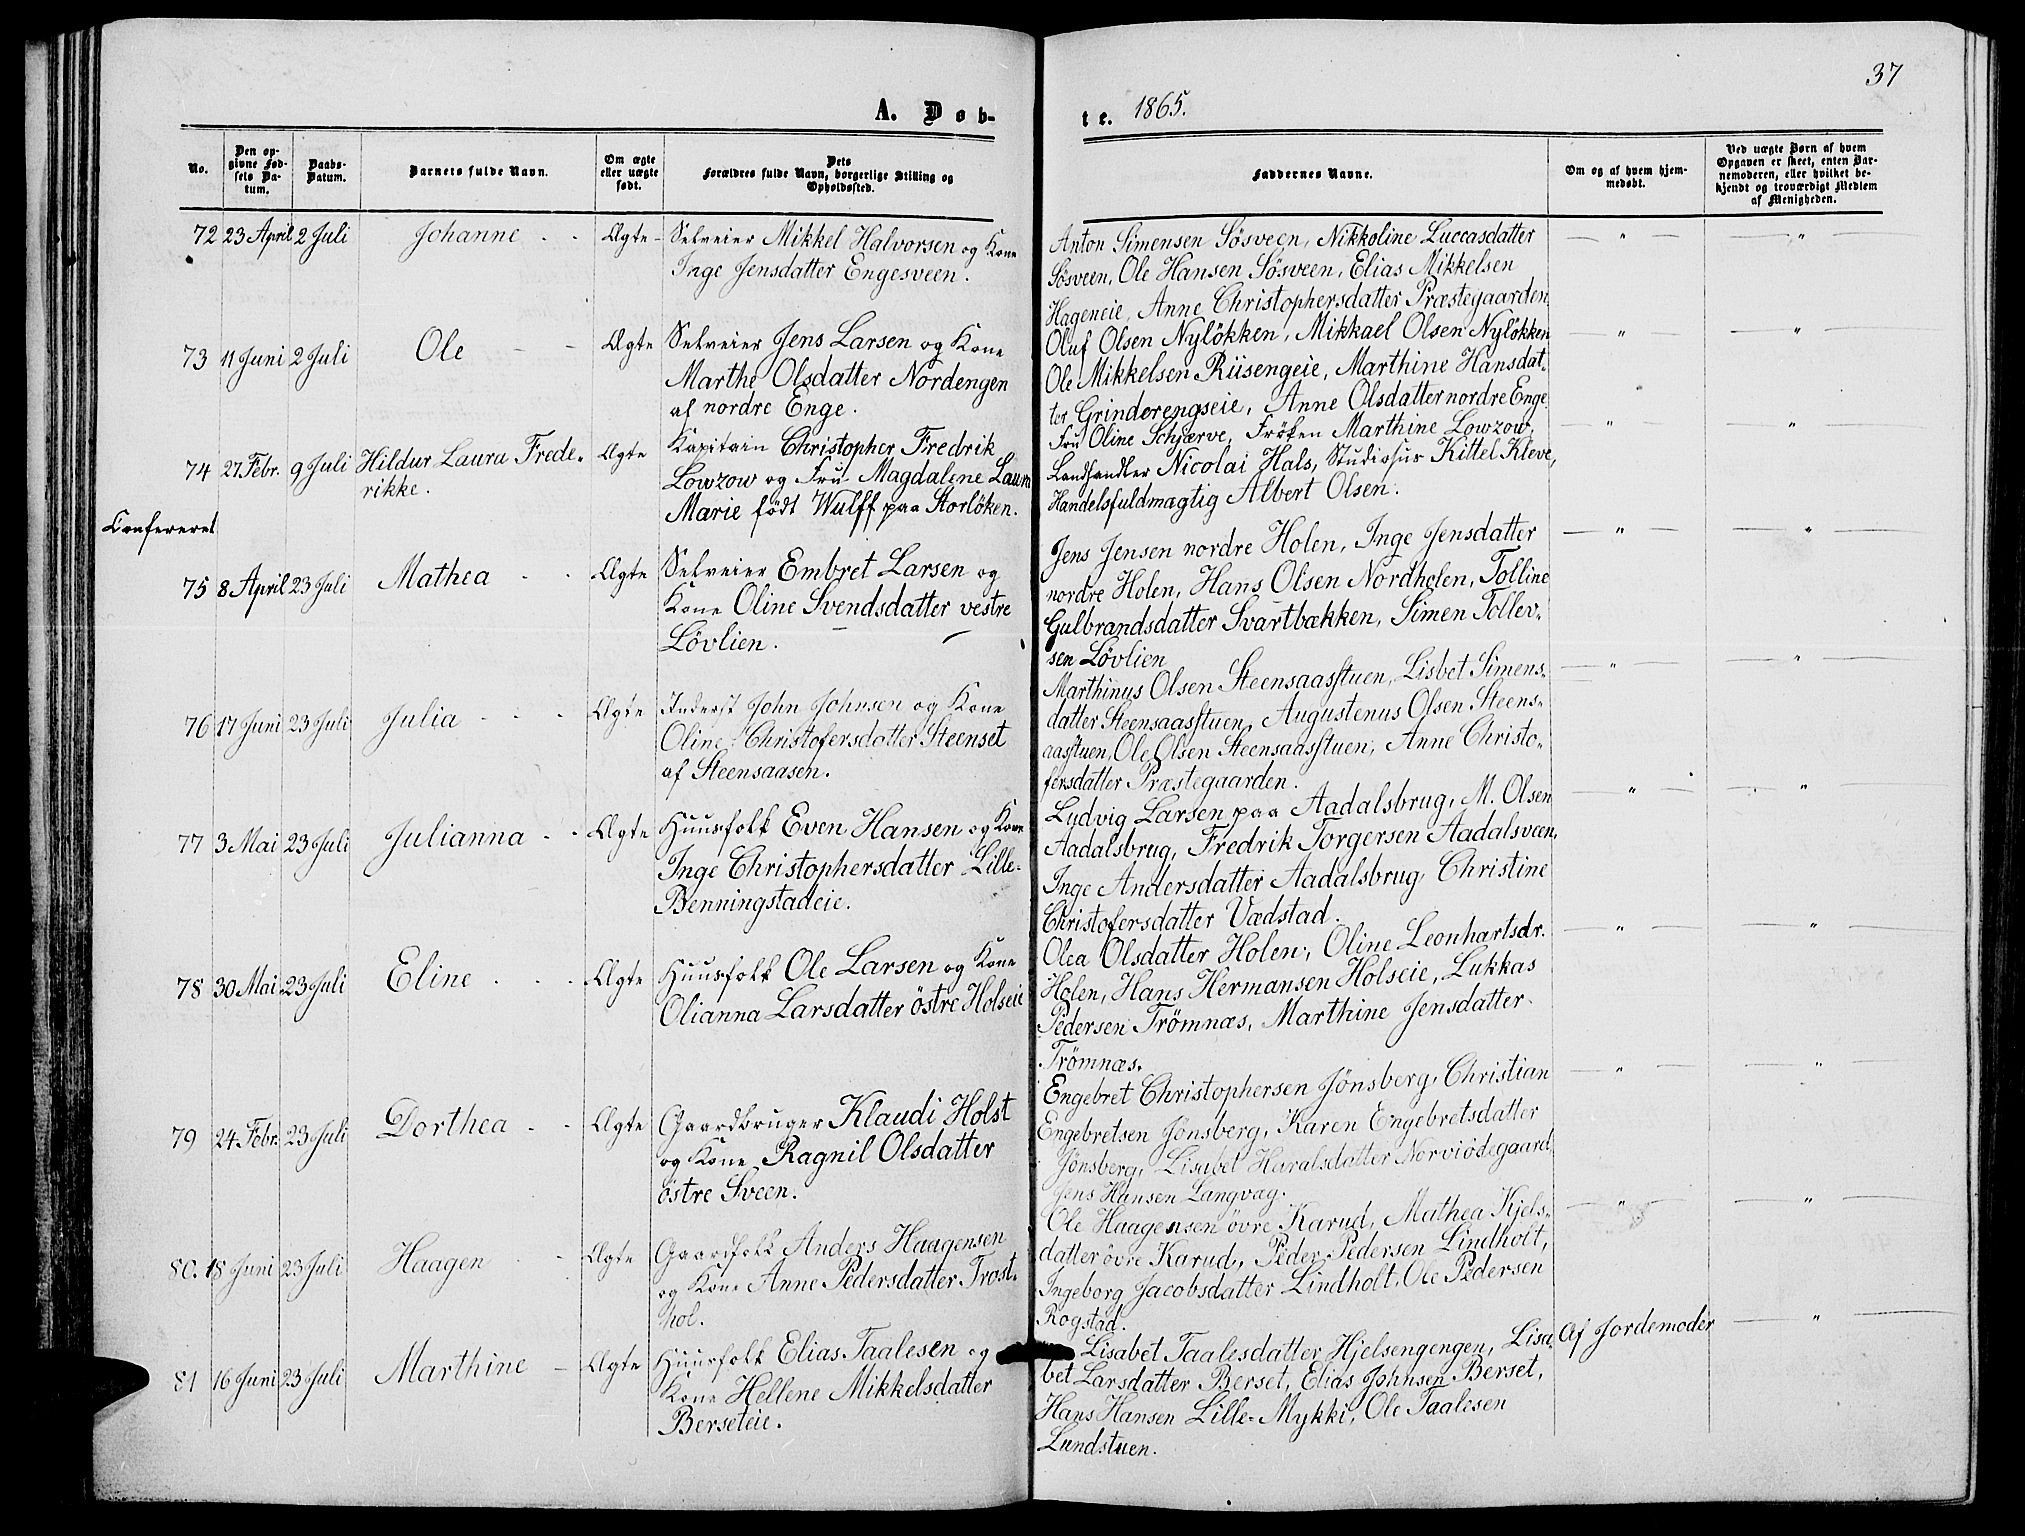 37
A. Døb-
te. 1865.
No.
Den op-
givne Fød-
sels Da-
tum.
Daabs-
Datum.
Barnets fulde Navn.
Om ægte
eller uægte
født.
Dets
Forældres fulde Navn, borgerlige Stilling og
Opholdssted.
Faddernes Navne.
Om og af hvem hjem-
medøbt.
Ved uægte Børn af hvem
Opgaven er skeet, enten Bar-
nemoderen, eller hvilket be-
kjendt og troværdigt Medlem
af Menigheden.
72 23 April 2 Juli Johanne - - Ægte - Selveier Mikkel Halvorsen og Kone
Inge Jensdatter Engesveen.
Anton Simensen Sösveen, Nikkoline Luccasdatter
Sösveen, Ole Hansen Sösveen, Elias Mikkelsen
Hageneie, Anne Christophersdatter Præstegaarden
— " — — " —
73 11 Juni 2 Juli Ole - - Ægte Selveier Jens Larsen og Kone
Marthe Olsdatter Nordengen
af nordre Enge.
Oluf Olsen Nylökken, Mikkael Olsen Nylökken
Ole Mikkelsen Riisengeie, Marthine Hansdat-
ter Grinderengseie, Anne Olsdatter nordre Enge.
— " — — " —
74 27 Febr. 9 Juli Hildur Laura Frede-
rikke.
Ægte Kapitain Christopher Fredrik
Lowzow og Fru Magdalene Laura
Marie född Wulff paa Storlöken.
Fru Oline Schjærve, Fröken Marthine Lowzow,
Landhandler Nicolai Hals, Studiosus Kittel Kleve,
Handelsfuldmægtig Albert Olsen.
— " — — " —
Confereret
75 8 April 23 Juli Mathea - - Ægte Selveier Embret Larsen og
Kone Oline Svendsdatter vestre
Lövlien.
Jens Jensen nordre Holen, Inge Jensdatter
nordre Holen, Hans Olsen Nordholen, Tolline
Gulbrandsdatter Svartbækken, Simen Tollev-
sen Lövlien
— " — — " —
76 17 Juni 23 Juli Julia - - - Ægte Inderst John Johnsen og Kone
Oline Christofersdatter Steenset
af Steensaasen.
Marthinus Olsen Steensaasstuen, Lisbet Simens-
datter Steensaasstuen, Augustenus Olsen Steens-
aasstuen, Ole Olsen Steensaasstuen, Anne Christo-
fersdatter Præstegaarden.
— " — — " —
77 3 Mai 23 Juli Julianna - - Ægte Huusfolk Even Hansen og Kone
Inge Christophersdatter Lille-
Benningstadeie.
Ludvig Larsen paa Aadalsbrug, M. Olsen
Aadalsbrug, Fredrik Torgersen Aadalsveen,
Inge Andersdatter Aadalsbrug, Christine
Christofersdatter Vædstad.
— " — — " —
78 30 Mai 23 Juli Eline - - - Ægte Huusfolk Ole Larsen og Kone
Olianna Larsdatter östre Holseie
Olea Olsdatter Holen, Oline Leonhartsdr.
Holen, Hans Hermansen Holseie, Lukkas
Pedersen Trömnæs, Marthine Jensdatter
Trömnæs.
— " — — " —
79 24 Febr. 23 Juli Dorthea - - Ægte Gaardbruger Klaudi Holst
og Kone Ragnil Olsdatter
östre Sveen.
Engebret Christophersen Jönsberg, Christian
Engebretsen Jönsberg, Karen Engebretsdatter
Jönsberg, Lisabet Haralsdatter Norviödegaard,
Jens Hansen Langvag.
— " — — " —
80. 18 Juni 23 Juli Haagen - Ægte Gaardfolk Anders Haagensen
og Kone Anne Pedersdatter Trost-
hol.
Ole Haagensen övre Karud, Mathea Kjels-
datter övre Karud, Peder Pedersen Lindholt,
Ingeborg Jacobsdatter Lindholt, Ole Pedersen
Rogstad.
— " — — " —
81 16 Juni 23 Juli Marthine - Ægte Huusfolk Elias Taalesen og
Kone Hellene Mikkelsdatter
Berseteie.
Lisabet Taalesdatter Hjelsengengen, Lisa-
bet Larsdatter Berset, Elias Johnsen Berset,
Hans Hansen Lille-Mykki, Ole Taalesen
Lundstuen.
Af Jordemoder — " —